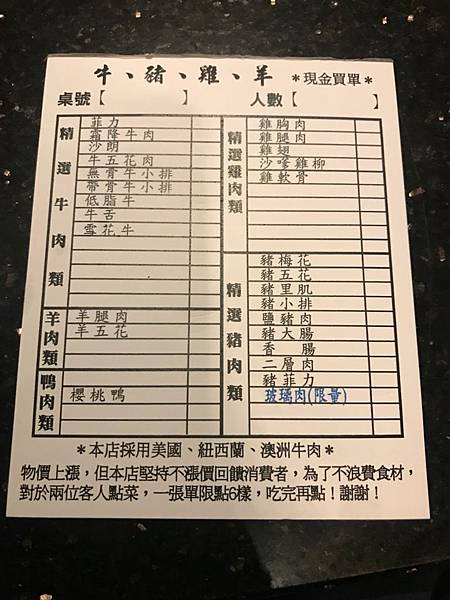 牛、豬、雞、羊 *現金買單*
桌號【 】 人數【 】
精選牛肉類
菲力
霜降牛肉
沙朗
牛五花肉
無骨牛小排
帶骨牛小排
低脂牛
牛舌
雪花牛
羊肉類
羊腿肉
羊五花
鴨肉類
櫻桃鴨
精選雞肉類
雞胸肉
雞腿肉
雞翅
沙嗲雞柳
雞軟骨
精選豬肉類
豬梅花
豬五花
豬里肌
豬小排
鹽豬肉
豬大腸
香 腸
二層肉
豬菲力
玻璃肉(限量)
*本店採用美國、紐西蘭、澳洲牛肉*
物價上漲，但本店堅持不漲價回饋消費者，為了不浪費食材，
對於兩位客人點菜，一張單限點6樣，吃完再點！謝謝！